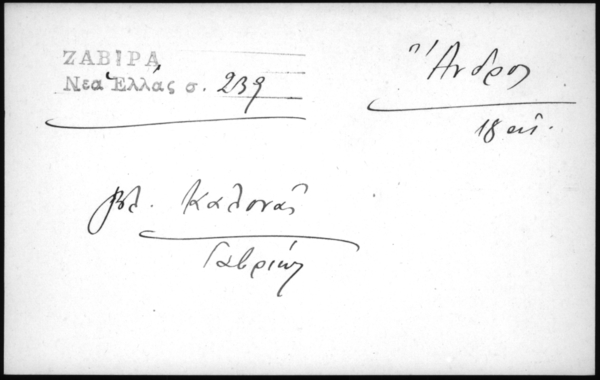 ΖΑΒΙΡΑ
Νεα Ἑλλάς σ. 239
Ἄνδρος
18 αἰ.
βλ. Καλονᾶς
Γαβριήλ